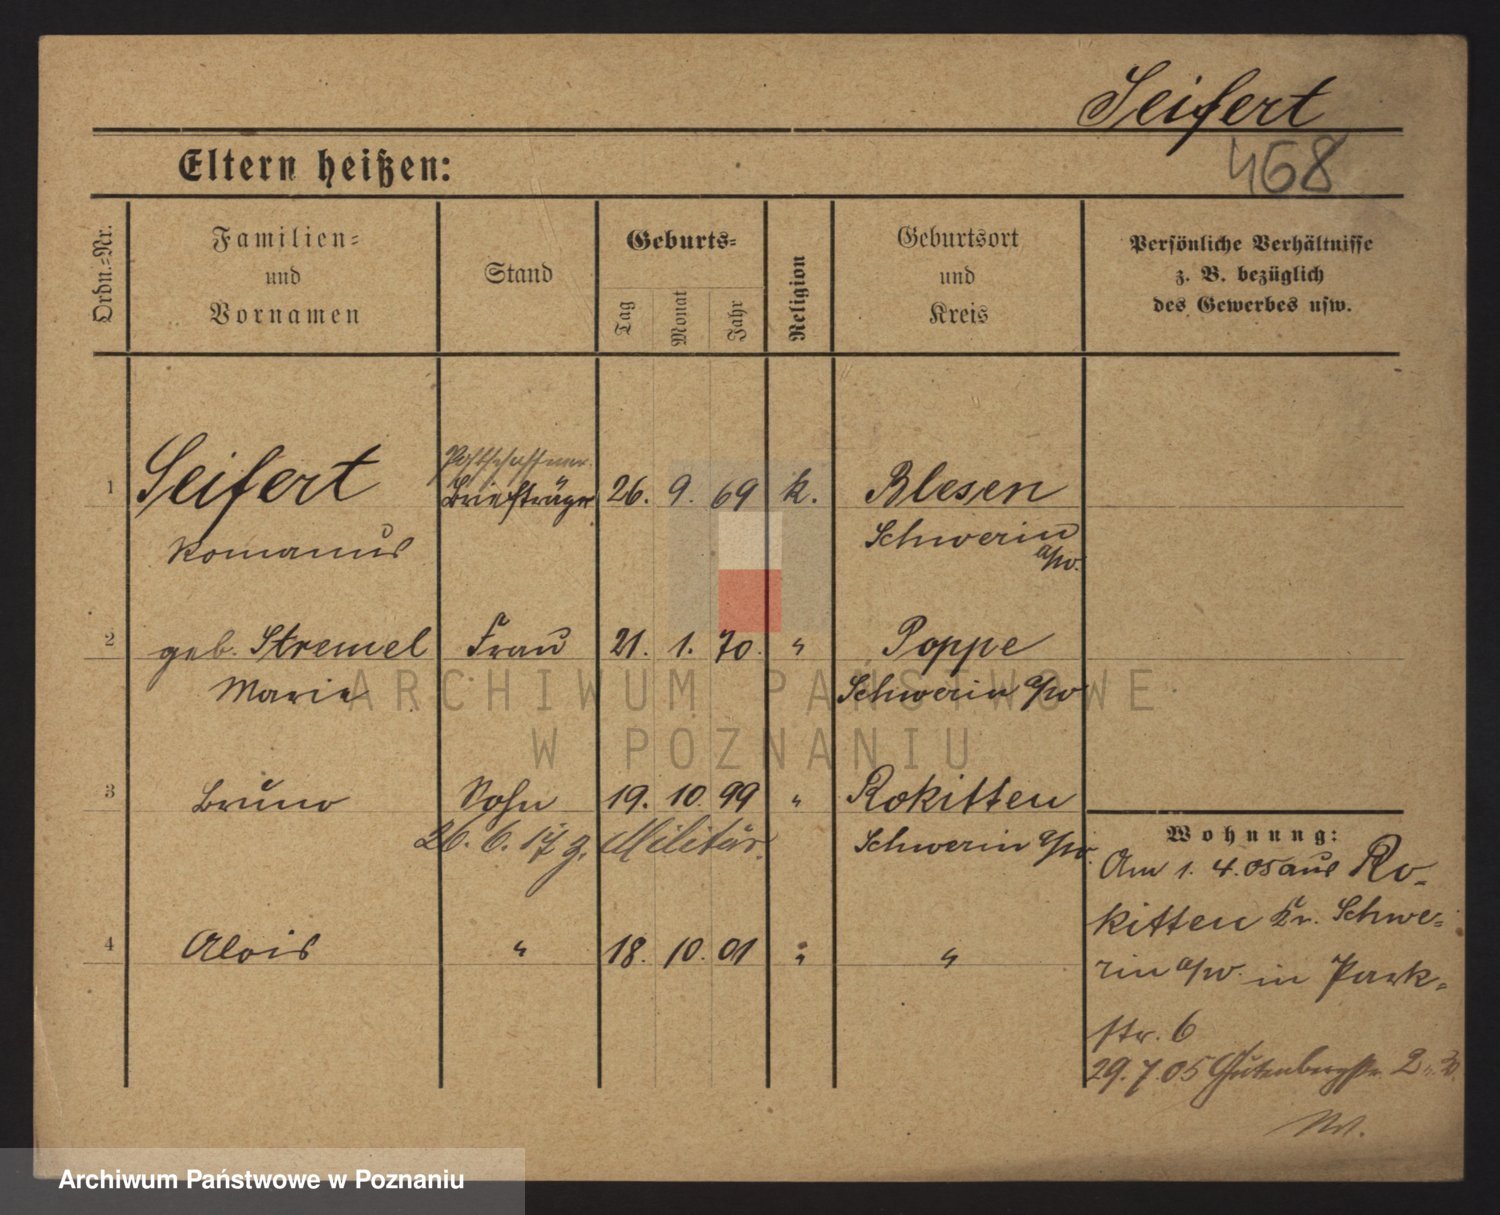 Seifert
468
Eltern heißen:
Ordn.-Nr.
Familien-
und
Vornamen
Stand
Geburts-
Tag
Monat
Jahr
Religion
Geburtsort
und
Kreis
Persönliche Verhältnisse
z. B. bezüglich
des Gewerbes usw.
Postschaffner
1 Seifert Briefträger 26. 9. 69 k. Blesen
Romanus Schwerin
a/W.
2 geb. Stremel Frau 21. 1. 70. " Poppe
Marie Schwerin a/W
ARCHIWUM PAŃSTWOWE
W POZNANIU
3 Bruno Sohn 19. 10. 99 " Rokitten
26. 6. 17 z. Militär. Schwerin a/W.
4 Alois " 18. 10. 01 " "
Wohnung:
Am 1. 4. 05 aus Ro-
kitten Kr. Schwe-
rin a/W. in Park-
str. 6
29. 7. 05 Gutenbergstr. 2
Archiwum Państwowe w Poznaniu